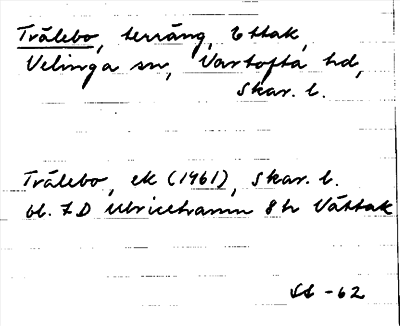 Trälebo, terräng, Ettak,
Velinga sn, Vartofta hd,
Skar. l.
Trälebo, ek (1961), Skar. l.
bl. 7D Ulricehamn 8h Vättak
SS -62